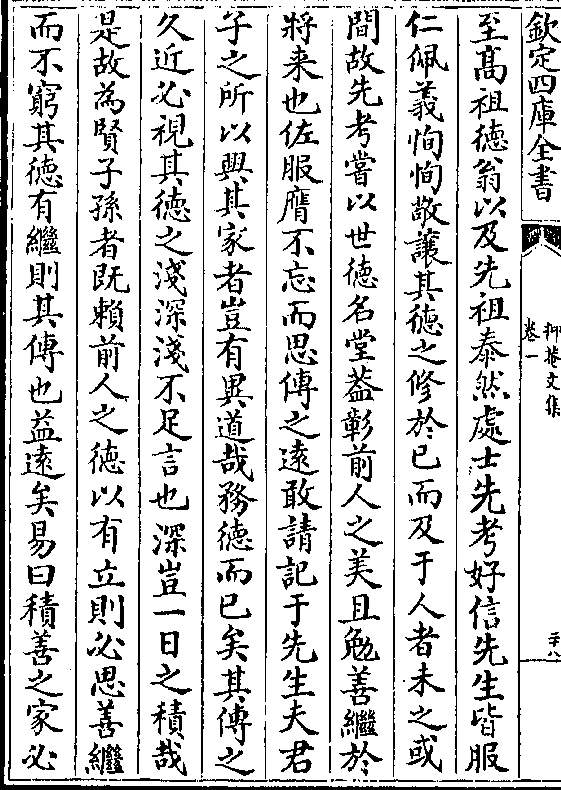 欽定四庫全書
抑菴文集
卷一
二十八
至髙祖徳翁以及先祖泰然處士先考好信先生皆服
仁佩義恂恂敬讓其徳之修於已而及于人者未之或
間故先考嘗以世徳名堂葢彰前人之美且勉善繼於
將来也佐服膺不忘而思傳之逺敢請記于先生夫君
子之所以興其家者豈有異道哉務徳而已矣其傳之
久近必視其徳之淺深淺不足言也深豈一日之積哉
是故為賢子孫者既賴前人之徳以有立則必思善繼
而不窮其徳有繼則其傳也益逺矣易曰積善之家必